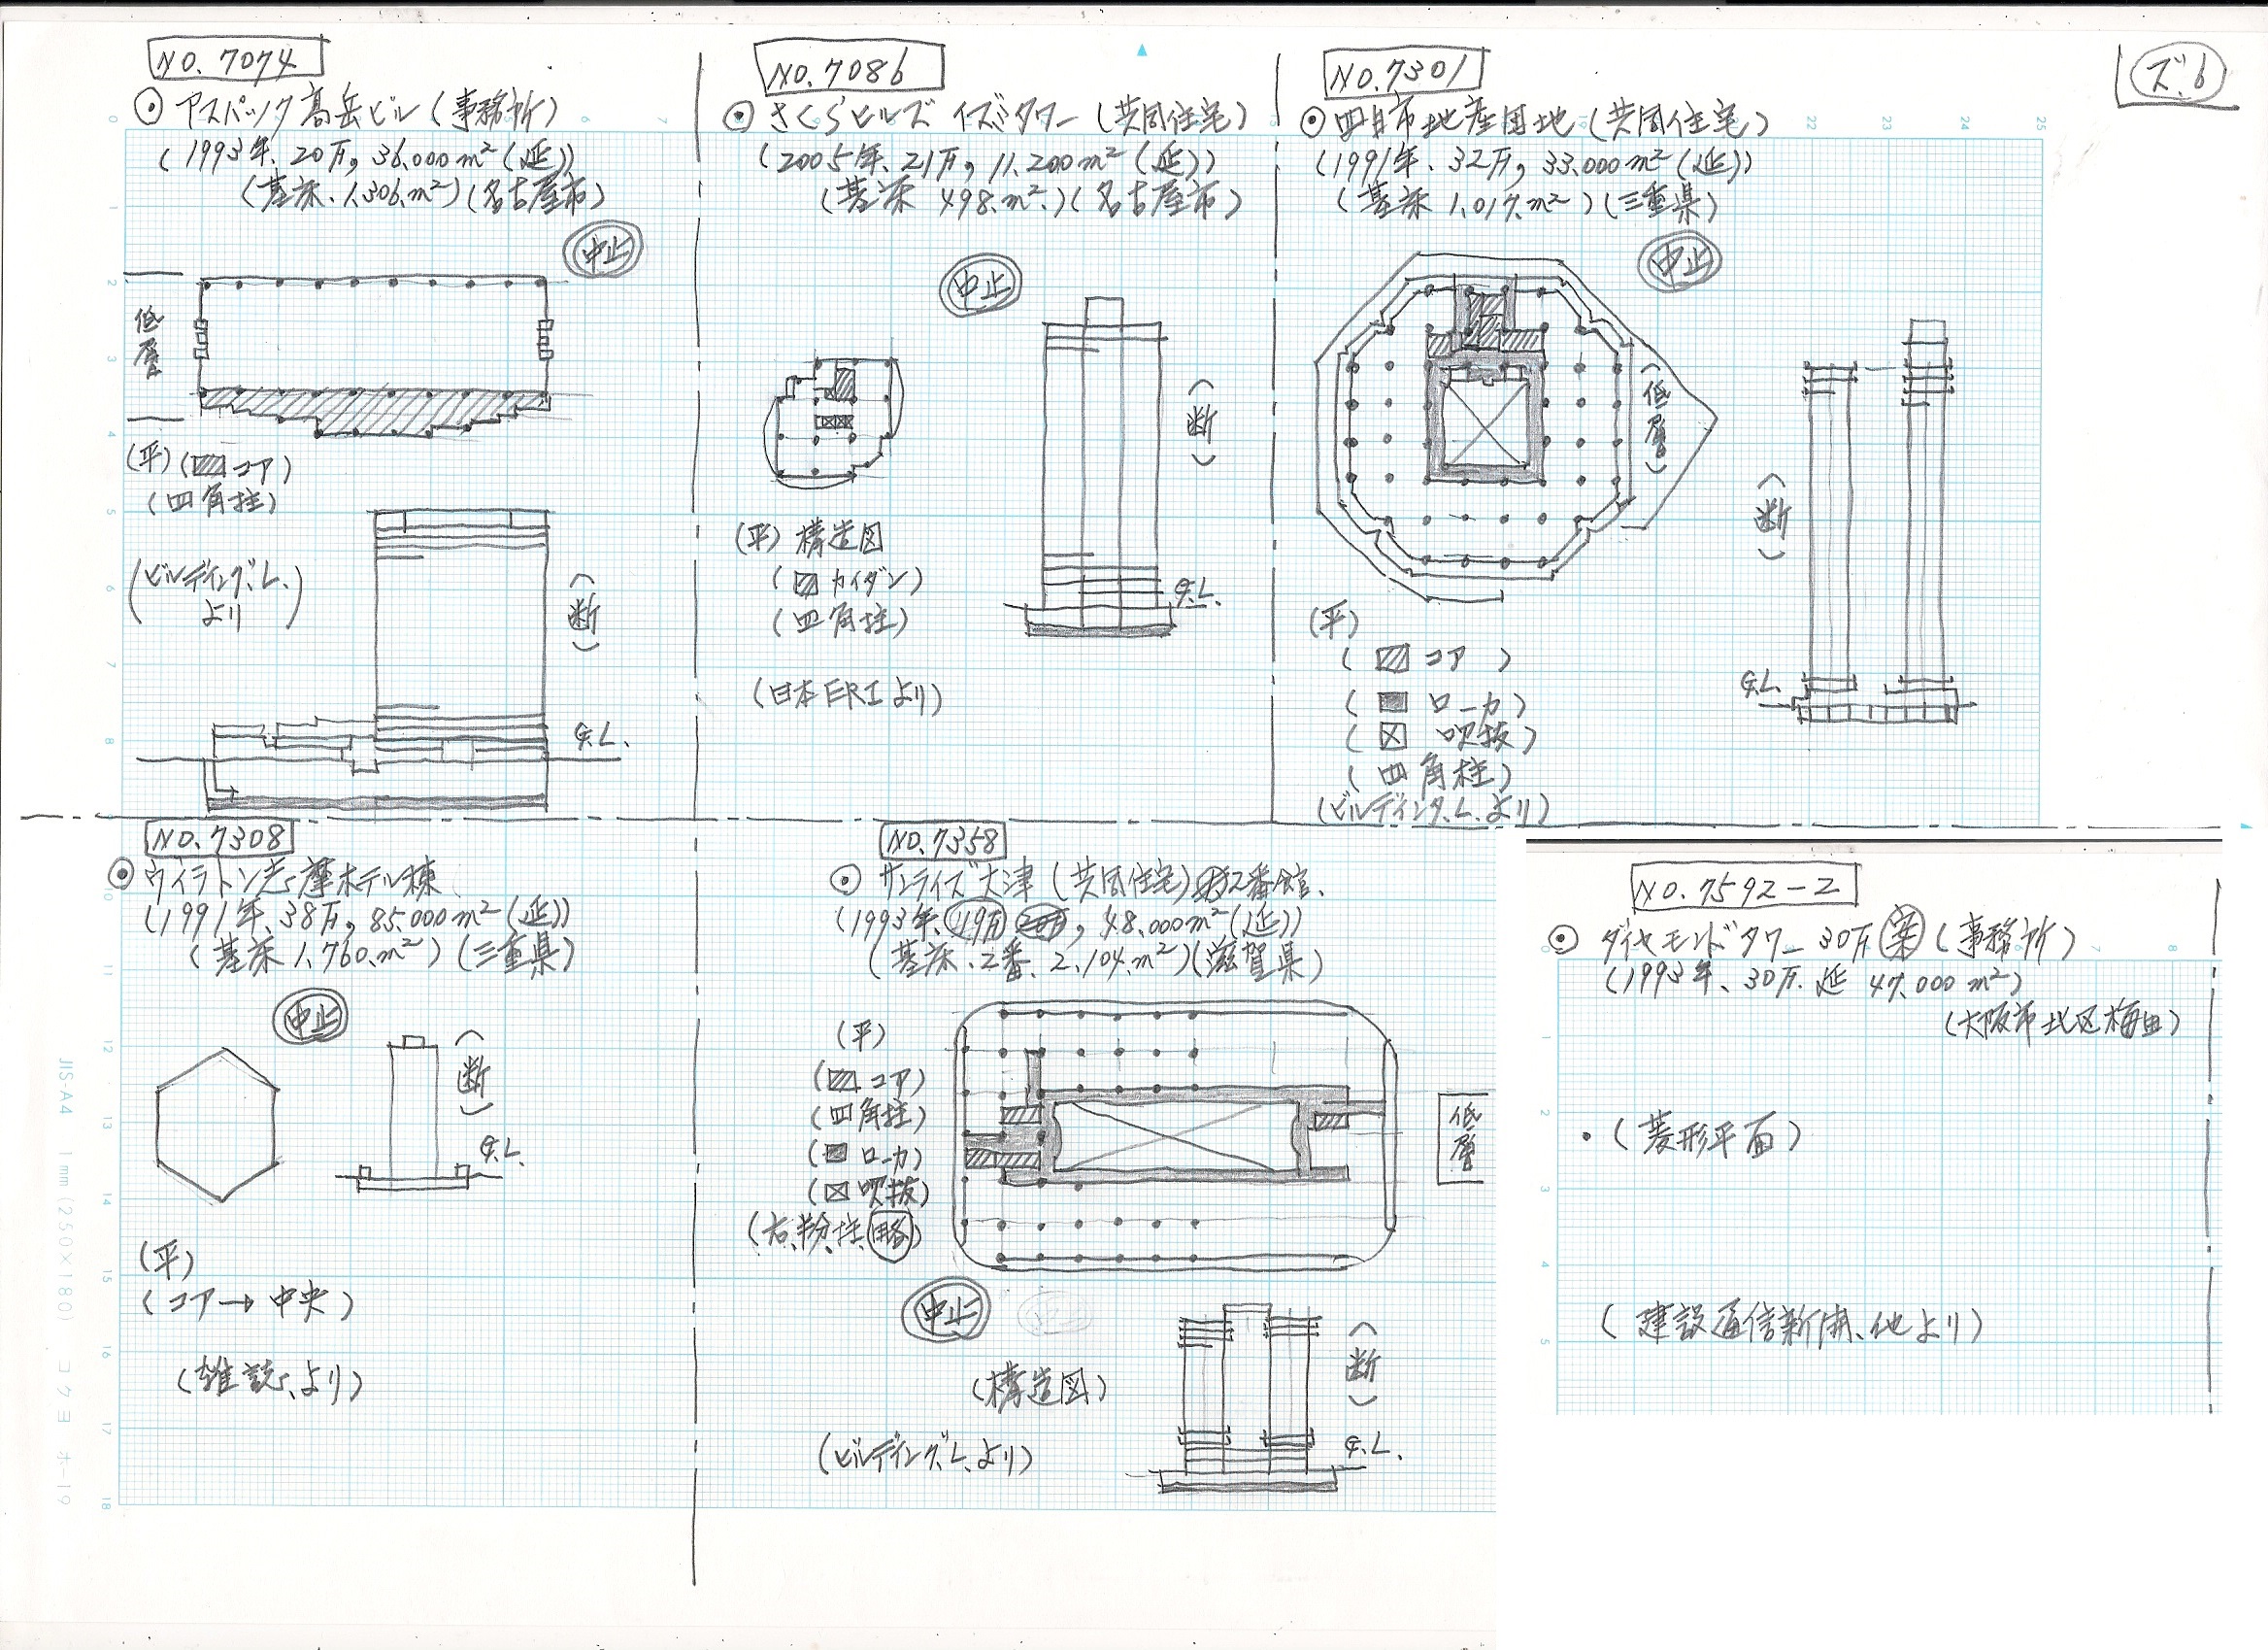 ズ.6
NO.7074
アスパック高岳ビル(事務所)
(1993年、20万,36.000m²(延))
(基床.1.306.m²)(名古屋市)
中止
低層
(平)(コア)
(四角柱)
(ビルディング.L.より)
(断)
G.L.
NO.7086
さくらヒルズ イズミタワー(共同住宅)
(2005年、21万,11.200m²(延))
(基床 498.m².)(名古屋市)
中止
(断)
(平)構造図
(カイダン)
(四角柱)
G.L.
(日本ERIより)
NO.7301
四日市地産団地(共同住宅)
(1991年、32万,33.000m²(延))
(基床 1.017.m²)(三重県)
中止
(低層)
(断)
(平)
(コア)
(ローカ)
(吹抜)
(四角柱)
(ビルディング.L.より)
G.L.
NO.7308
ウィラトン志摩ホテル棟
(1991年、38万,85.000m²(延))
(基床 1.760.m²)(三重県)
中止
(断)
G.L.
(平)
(コア→中央)
(雑誌、より)
NO.7358
サンライズ大津(共同住宅)2番館.
(1993年、49万,48.000m²(延))
(基床.2番.2.104.m²)(滋賀県)
(平)
(コア)
(四角柱)
(ローカ)
(吹抜)
(右半分、柱、略)
低層
中止
(構造図)
(断)
(ビルディング.L.より)
G.L.
NO.7592-2
ダイヤモンドタワー30万案(事務所)
(1993年、30万.延 47.000m²)
(大阪市北区梅田)
・(菱形平面)
(建設通信新聞、他より)
JIS-A4 1mm(250×180) コクヨ ホ-19